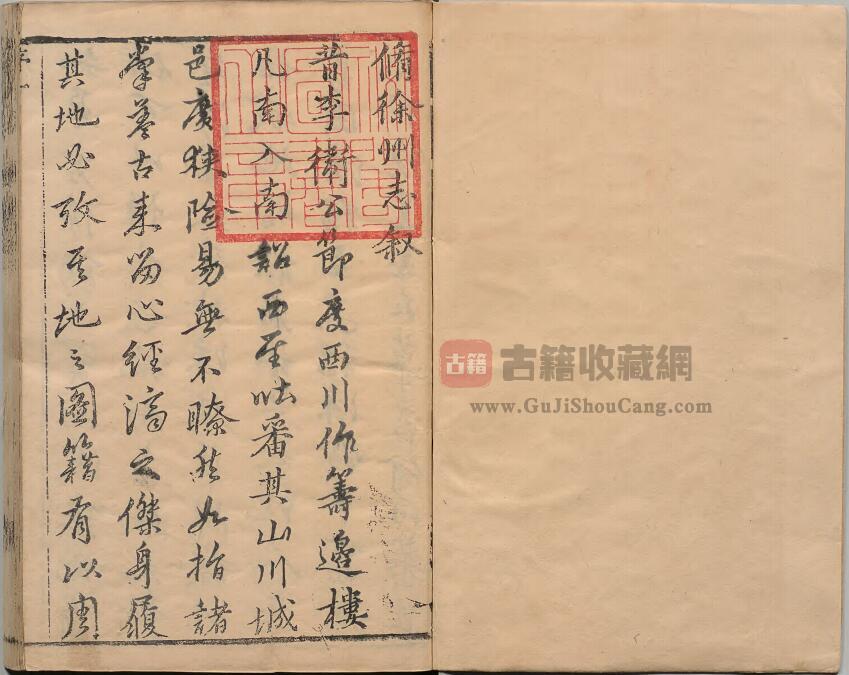 脩徐州志叙
昔李衛公節度西川作籌邊樓
凡南入南詔西至吐番其山川城
邑廣狹險易無不瞭然如指諸
掌蓋古來留心經濟之傑身履
其地必攷其地之圖籍有以周
序一
古籍
古籍收藏網
www.GuJiShouCang.com